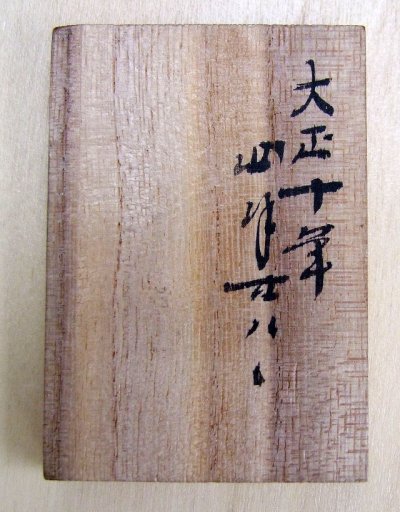 大正十年
四月廿八日